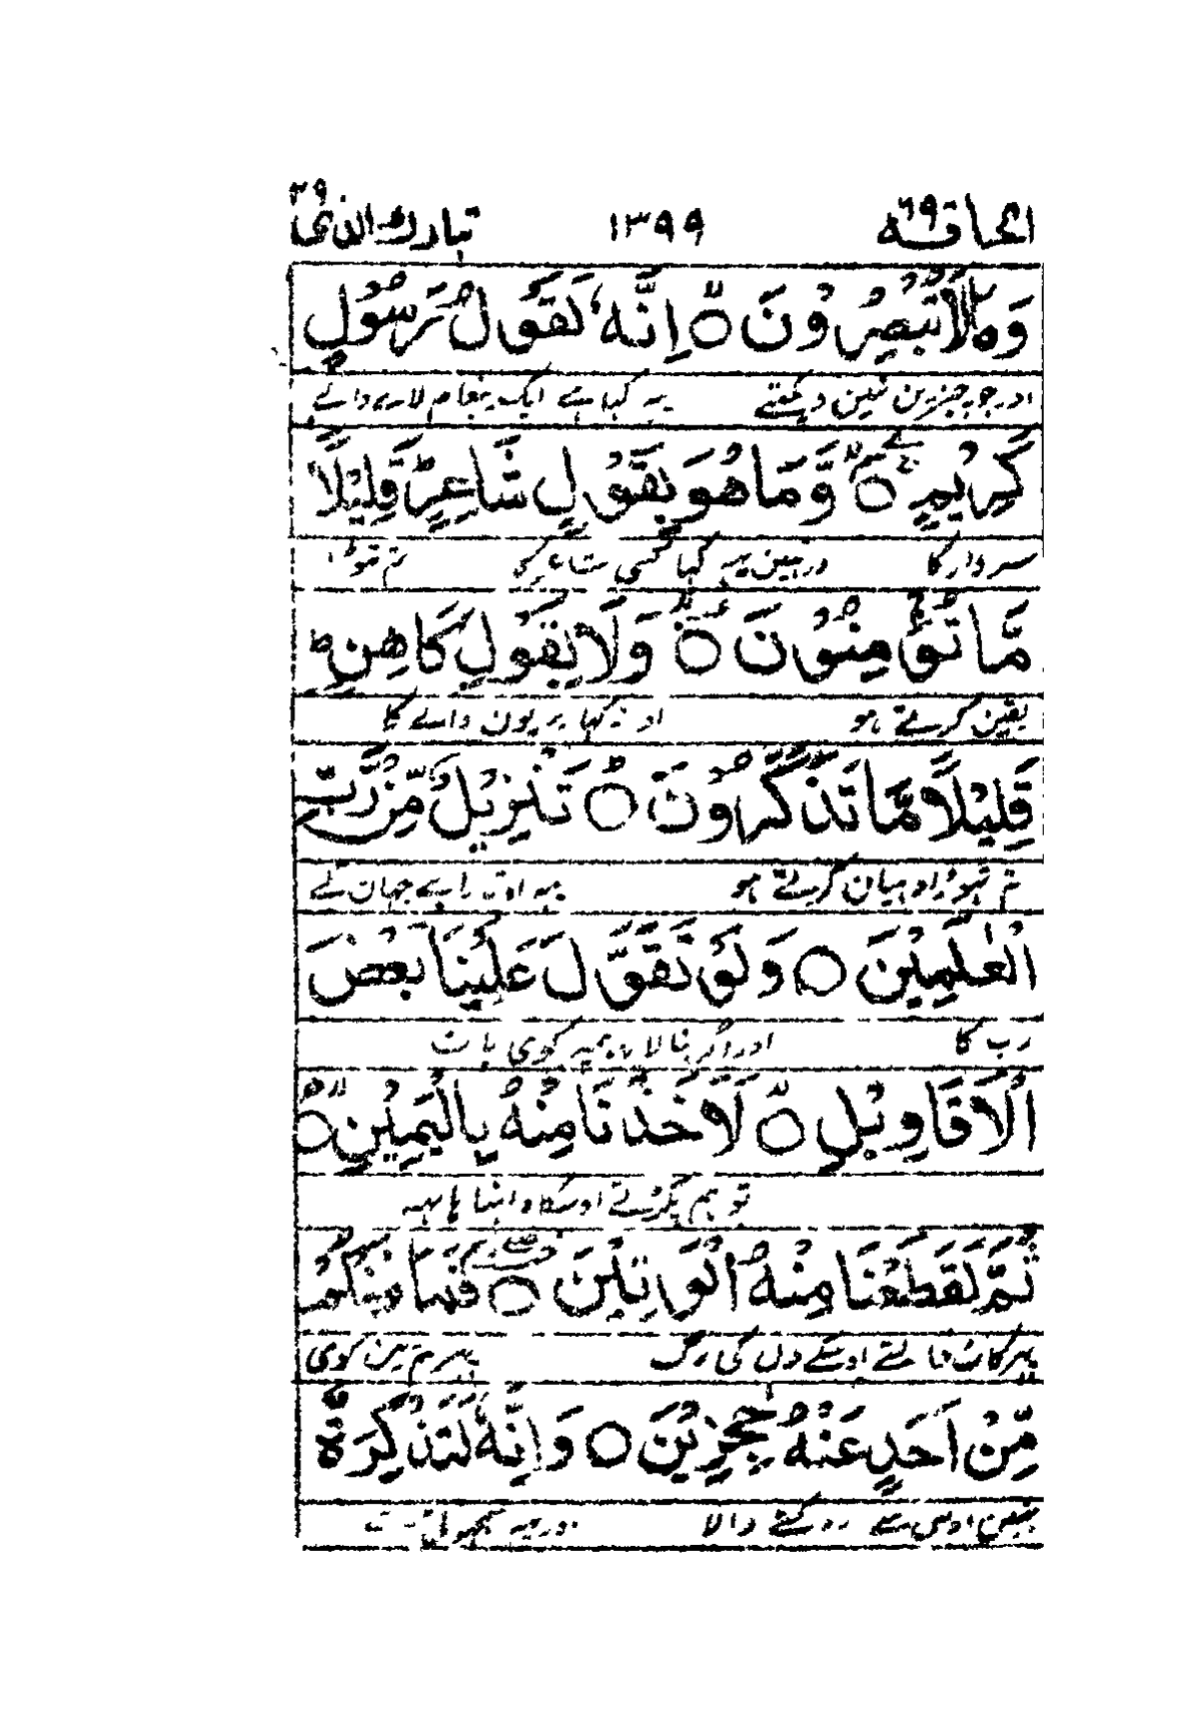 الحاقة ٦٩ ١٣٩٩ تبارك الذی ٢٩
وَمَا لَا تُبْصِرُوْنَ ۝ اِنَّهٗ لَقَوْلُ رَسُوْلٍ
اور جو چیزین نہین دیکھتے یہ کہا ہے ایک پیغام لانے والے
كَرِيْمٍ ۝ وَّمَا هُوَ بِقَوْلِ شَاعِرٍ ؕ قَلِيْلًا
سردار کا اور نہین یہ کہا کسی شاعر کا تم تھوڑا
مَّا تُؤْمِنُوْنَ ۝ وَلَا بِقَوْلِ كَاهِنٍ ؕ
یقین کرتے ہو اور نہ کہا پریون والے کا
قَلِيْلًا مَّا تَذَكَّرُوْنَ ۝ تَنْزِيْلٌ مِّنْ رَّبِّ
تم تھوڑا دہیان کرتے ہو یہ اوتارا ہے جہان کے
الْعٰلَمِيْنَ ۝ وَلَوْ تَقَوَّلَ عَلَيْنَا بَعْضَ
رب کا اور اگر بنا لاتا ہمپر کوی بات
الْاَقَاوِيْلِ ۝ لَاَخَذْنَا مِنْهُ بِالْيَمِيْنِ ۝
تو ہم پکڑتے اوسکا داہنا ہاتہہ
ثُمَّ لَقَطَعْنَا مِنْهُ الْوَتِيْنَ ۝ فَمَا مِنْكُمْ
پہر کاٹ ڈالتے اوسکے دل کی رگ پہر تم مین کوی
مِّنْ اَحَدٍ عَنْهُ حٰجِزِيْنَ ۝ وَاِنَّهٗ لَتَذْكِرَةٌ
نہین اوس سے روکنے والا اور یہ